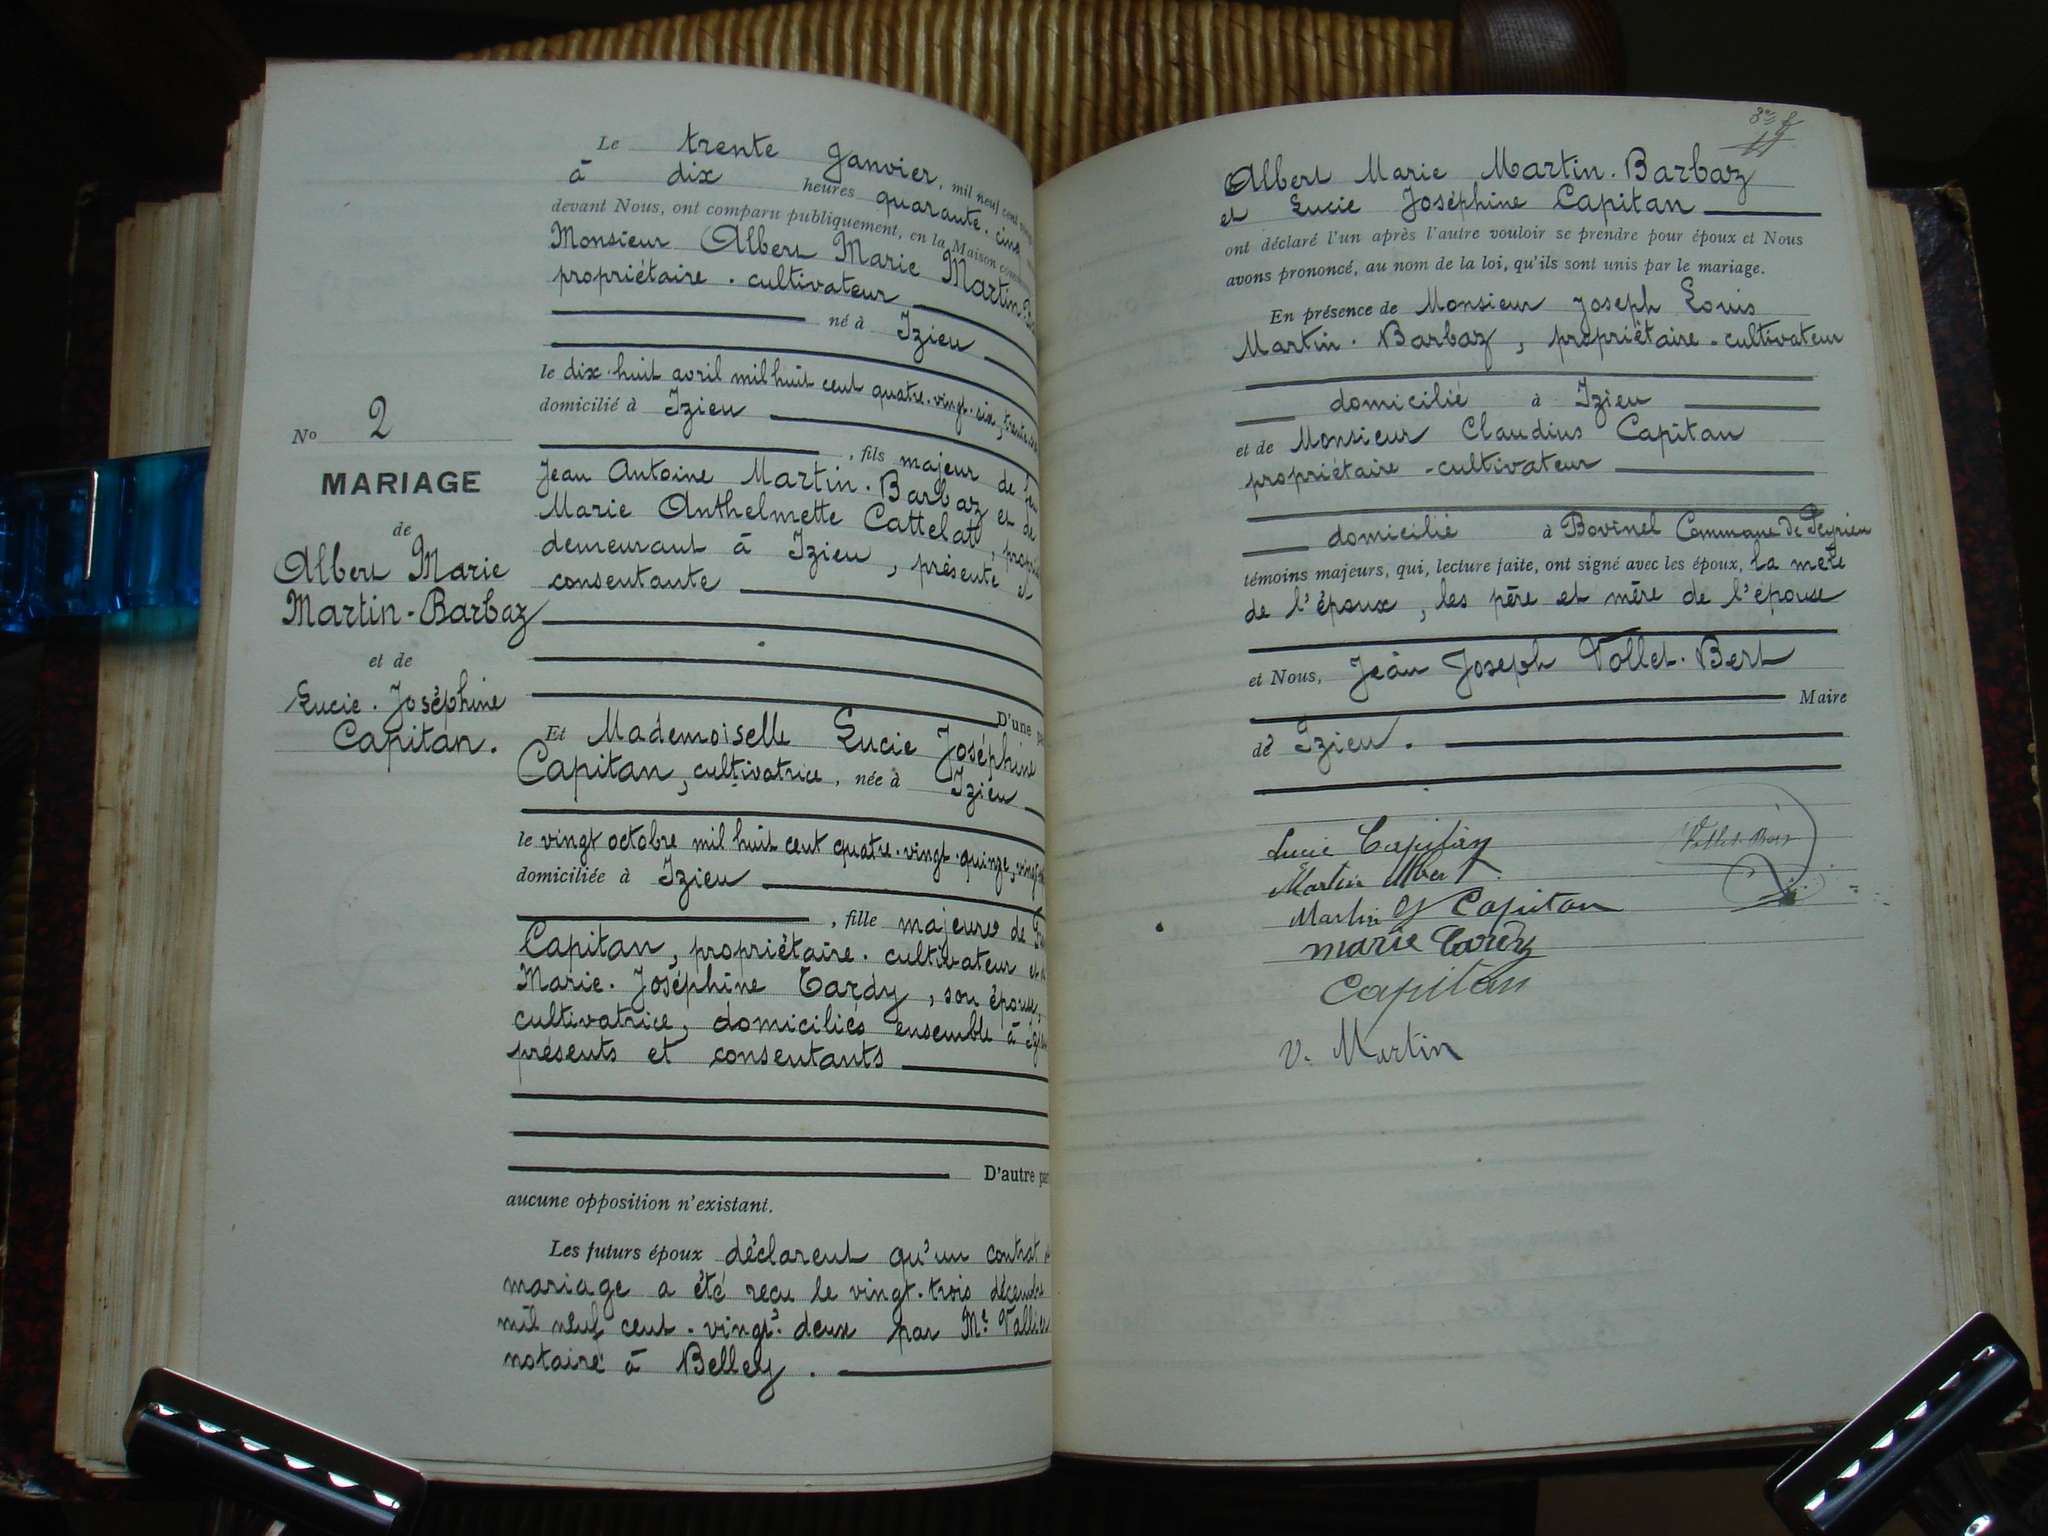 No 2
MARIAGE
de
Albert Marie
Martin-Barbaz
et de
Lucie. Joséphine
Capitan.
Le trente Janvier, mil neuf cent
à dix heures quarante. cinq
devant Nous, ont comparu publiquement, en la Maison
Monsieur Albert Marie Martin
propriétaire. cultivateur
né à Izieu
le dix. huit avril mil huit cent quatre. vingt. six,
domicilié à Izieu
, fils majeur de feu
Jean Antoine Martin. Barbaz et de
Marie Anthelmette Cattelat,
demeurant à Izieu, présente et
consentante
D'une
Et Mademoiselle Lucie Joséphine
Capitan, cultivatrice, née à Izieu
le vingt octobre mil huit cent quatre. vingt. quinze,
domiciliée à Izieu
, fille majeure de
Capitan, propriétaire. cultivateur et
Marie. Joséphine Tardy, son épouse,
cultivatrice, domiciliés ensemble à
présents et consentants
D'autre
aucune opposition n'existant.
Les futurs époux déclarent qu'un contrat
mariage a été reçu le vingt. trois décembre
mil neuf cent. vingt. deux par Me
notaire à Belley.
Albert Marie Martin. Barbaz
et Lucie Joséphine Capitan
ont déclaré l'un après l'autre vouloir se prendre pour époux et Nous
avons prononcé, au nom de la loi, qu'ils sont unis par le mariage.
En présence de Monsieur Joseph Louis
Martin. Barbaz, propriétaire. cultivateur
domicilié à Izieu
et de Monsieur Claudius Capitan
propriétaire - cultivateur
domicilié à Bovinel Commune de Peyrieu
témoins majeurs, qui, lecture faite, ont signé avec les époux, la mère
de l'époux, les père et mère de l'épouse
et Nous, Jean Joseph Vollet. Bert
Maire
de Izieu.
Lucie Capitan
Vollet-Bert
Martin Albert
Martin J Capitan
marie Tardy
Capitan
V. Martin